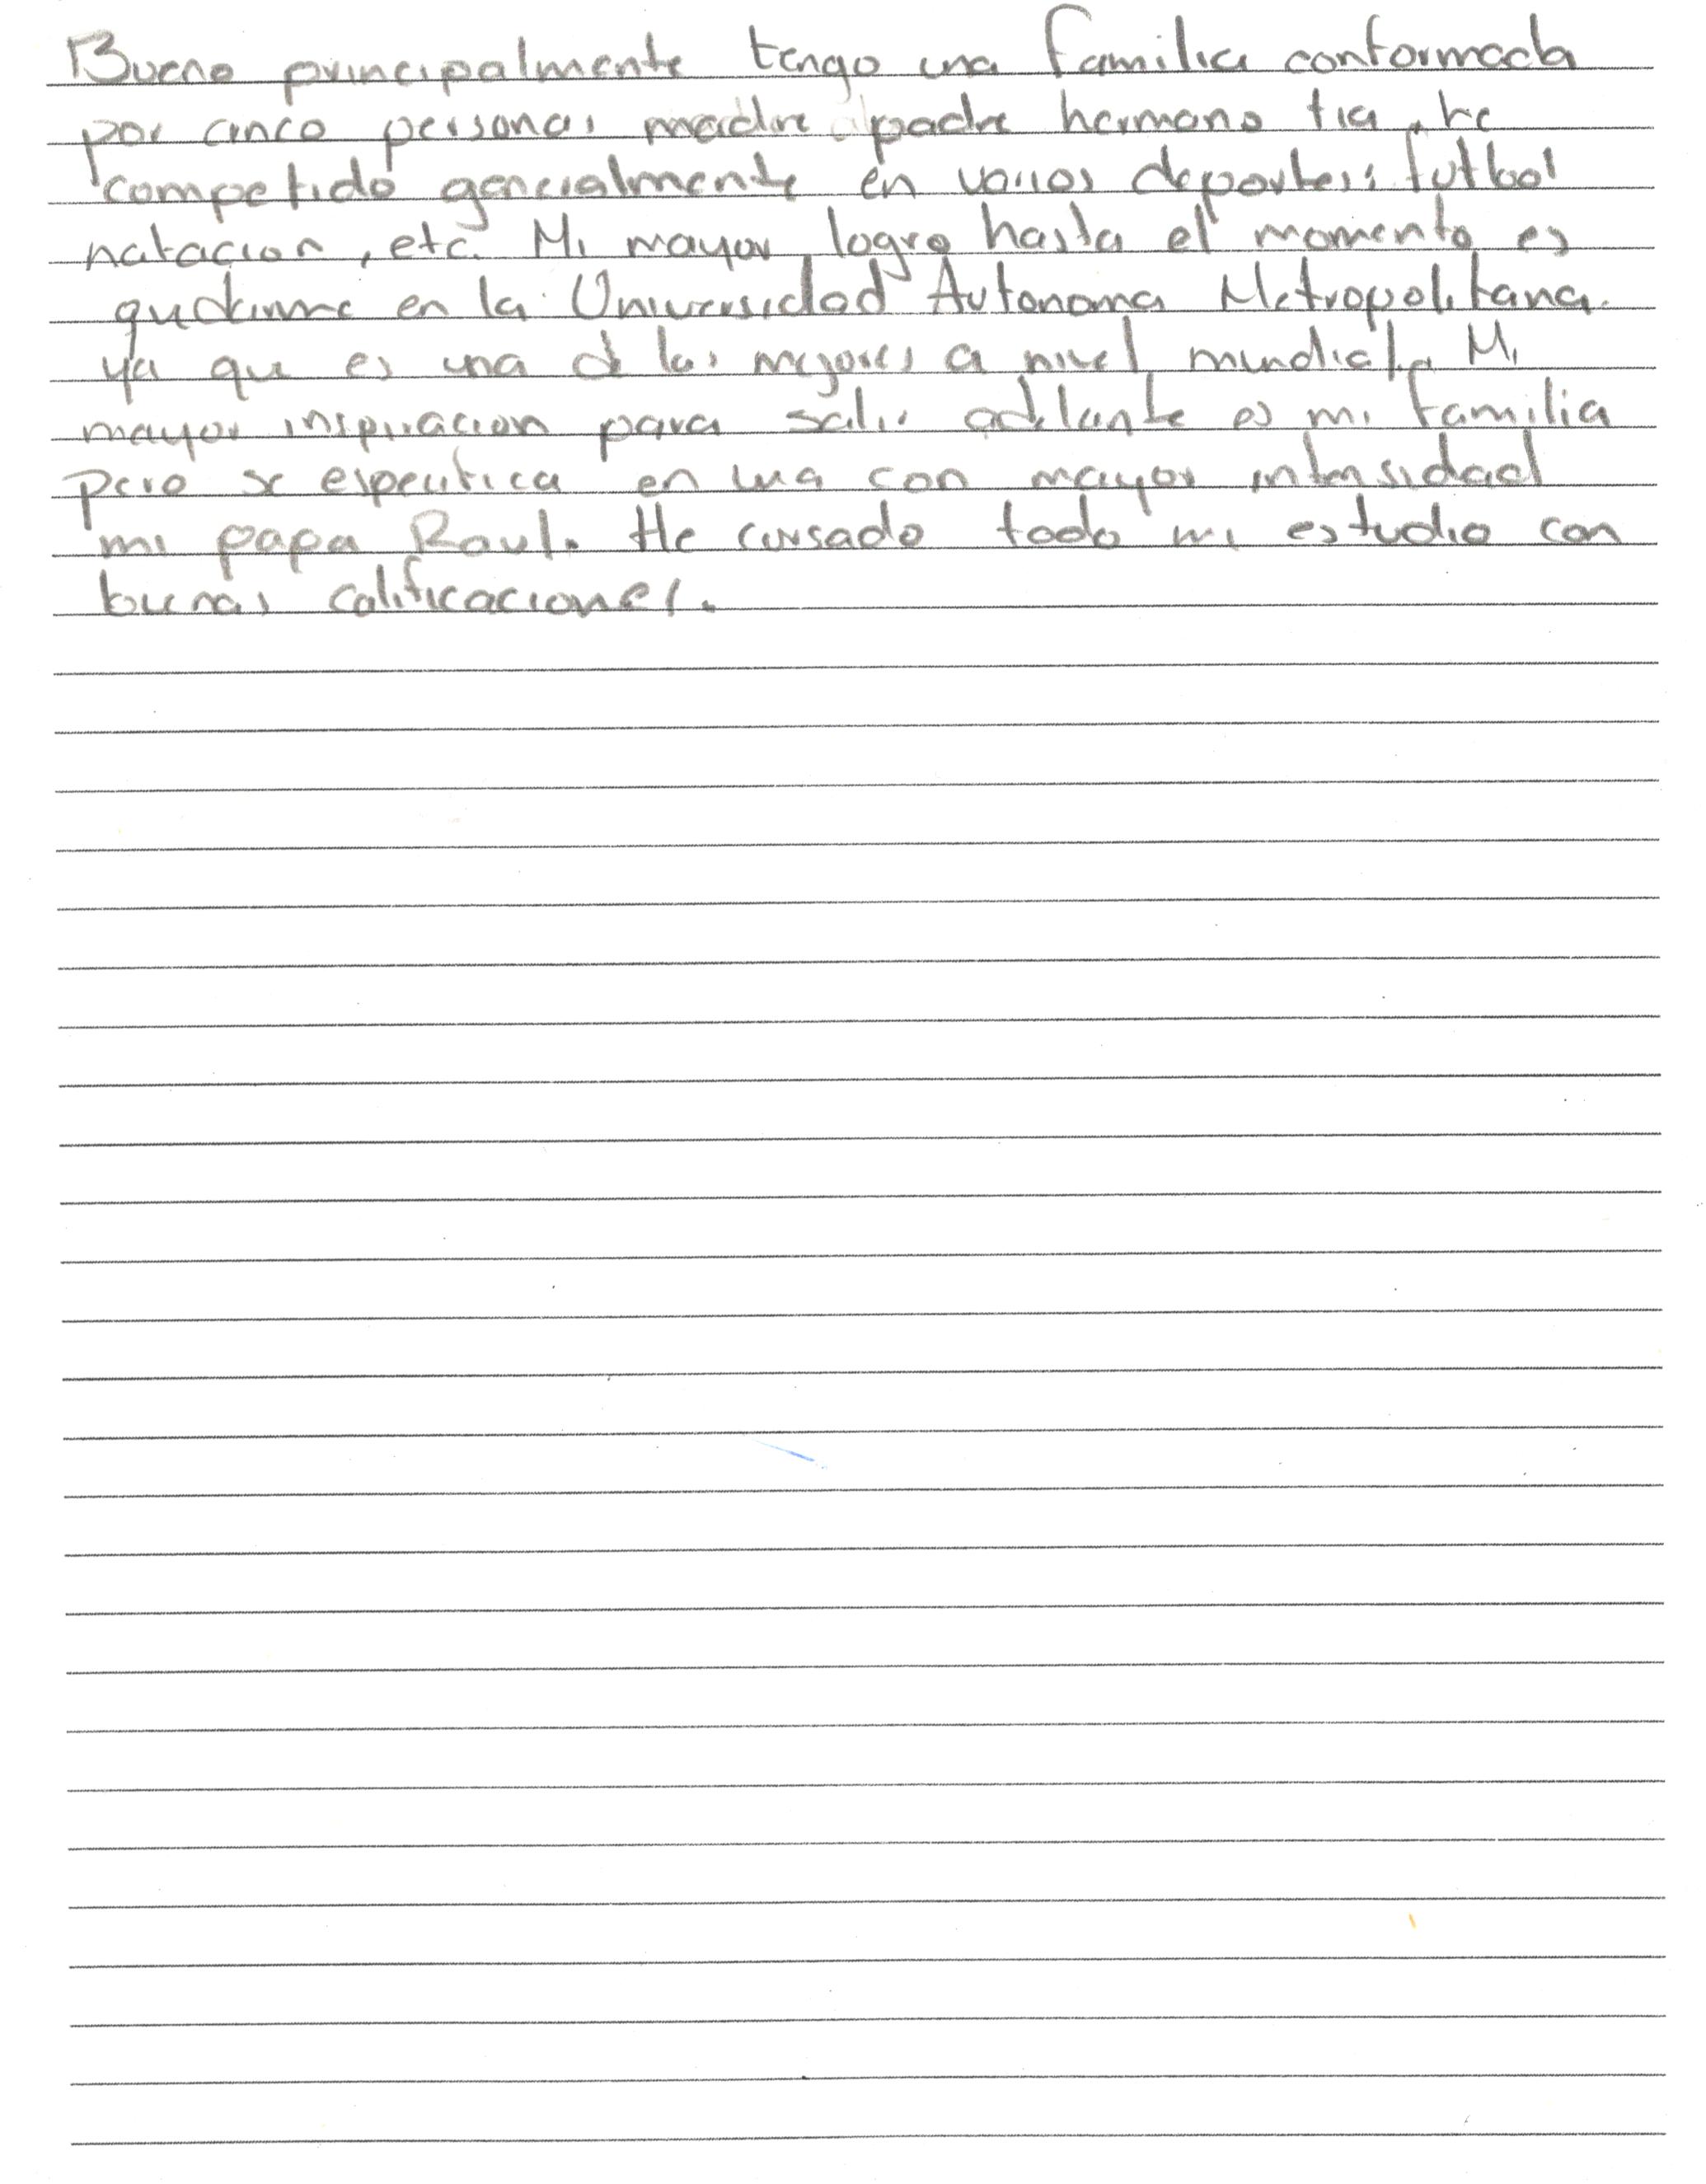 Bueno principalmente tengo una familia conformada
por cinco personas madre padre hermano tia, he
competido generalmente en varios deportes: futbol
natacion, etc. Mi mayor logro hasta el momento es
qudarme en la Universidad Autonoma Metropolitana.
ya que es una de las mejores a nivel mundial. Mi
mayor inspiracion para salir adelante es mi familia
pero se espeutica en una con mayor intensidad
mi papa Raul. He cursado todo mi estudio con
buenas calificaciones.